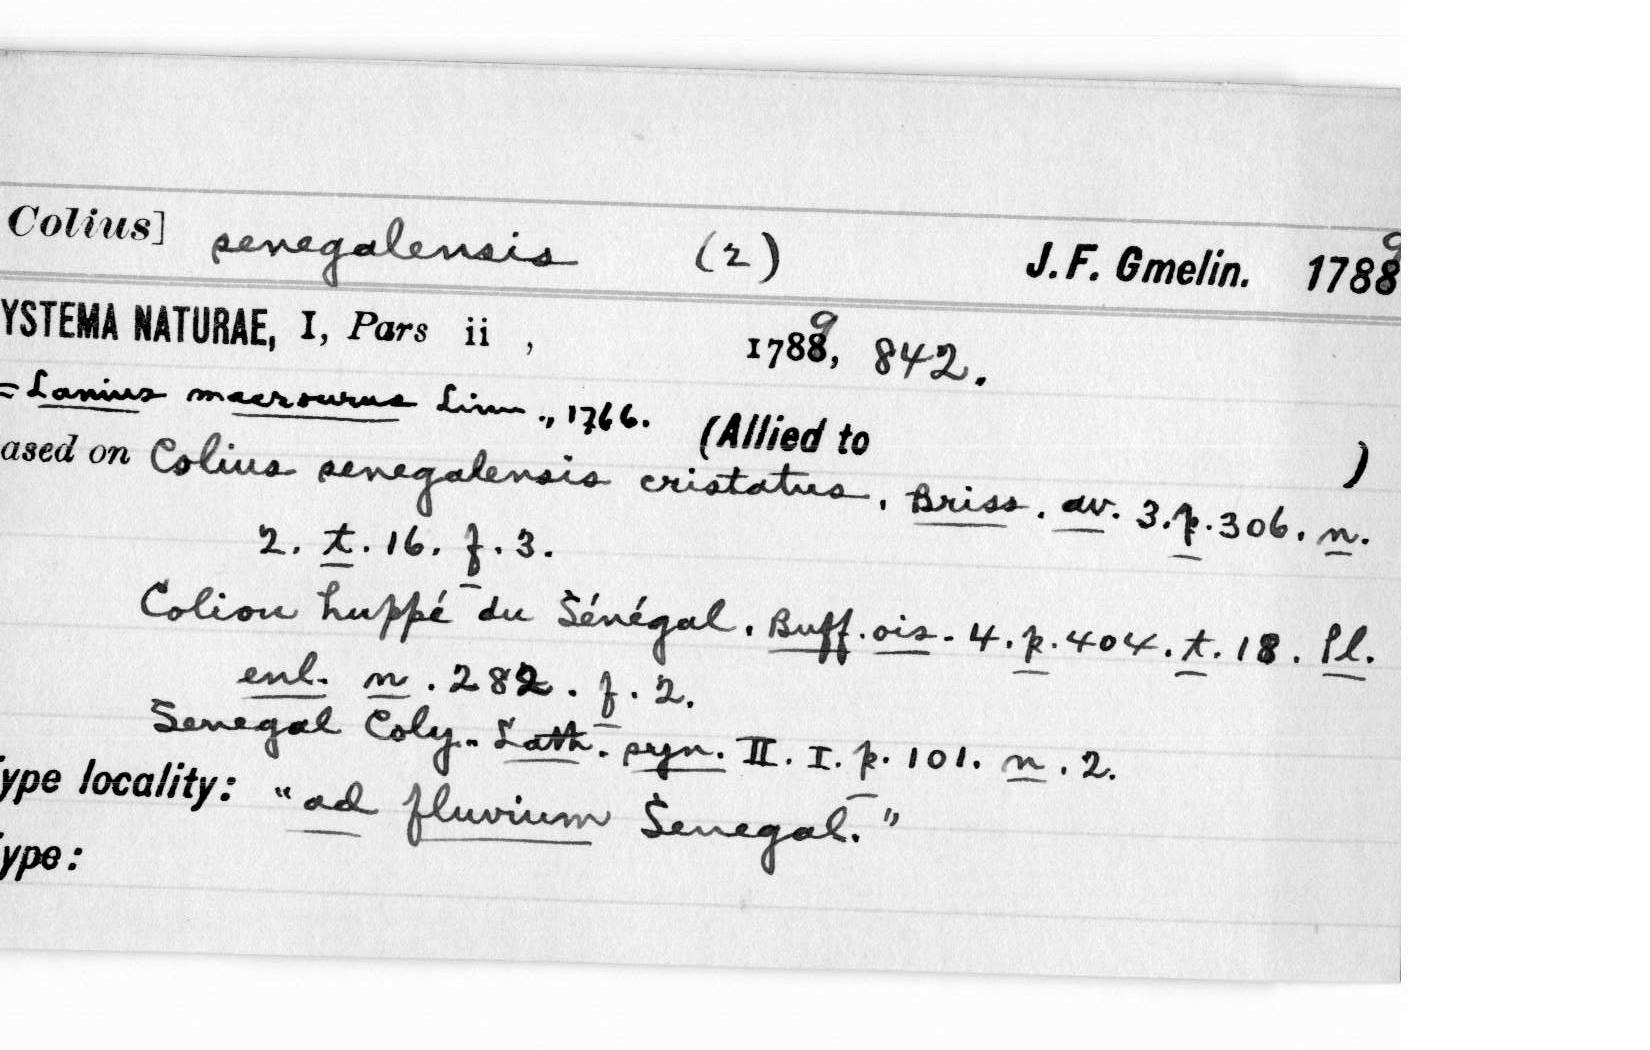 Colius] senegalensis (2) J. F. Gmelin. 1788 9
YSTEMA NATURAE, I, Pars ii , 1788, 9 842.
= Lanius macrourus Linn., 1766. (Allied to )
ased on Colius senegalensis cristatus. Briss. av. 3. p. 306. n.
2. t. 16. f. 3.
Coliou huppé du Sénégal. Buff. ois. 4. p. 404. t. 18. Pl.
enl. n. 282. f. 2.
Senegal Coly. Lath. syn. II. I. p. 101. n. 2.
ype locality: "ad fluvium Senegal."
ype: